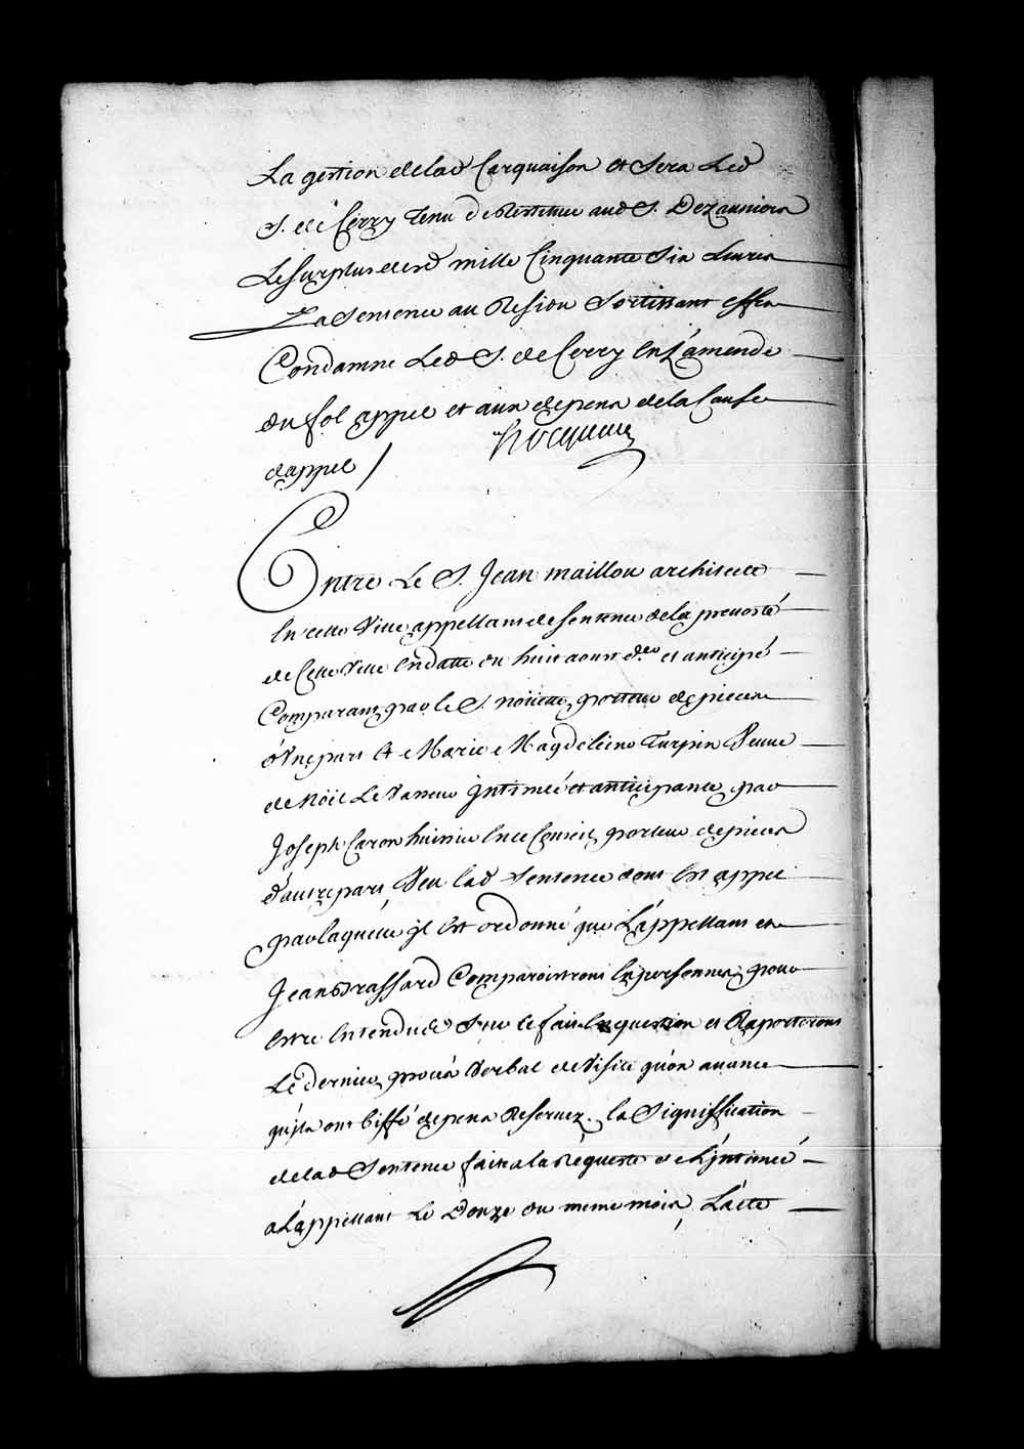 La gestion de lad Carquaison et sera Led
S. de Cerry tenu de Restituer aud S. Dezauniers
Le surplus desd mille Cinquante six Livres
La sentence au Residu sortissant effet
Condamne Led S. de Cerry en L'amende
du fol appel et aux depens de la Cause
dappel / hocquart
Entre Le S. Jean maillou architecte
en cette Ville appellant de sentence de la prevosté
de Cette Ville en datte du huit aoust d.er et anticipé
Comparant par le S. nouette porteur de pieces
d'Une part Et Marie Magdeleine Turpin Veuve
de Nöel Le Vasseur intimeé et anticipante par
Joseph Caron huissier en ce Conseil porteur de pieces
d'autre part Veu lad sentence dont est appel
par laquelle il est ordonné que L'appellant et
Jean Brassard Comparoistront en personnes pour
estre entendües sur le fait en question et Raporteront
Le dernier procés Verbal de Visite qu'on avance
qu'ils ont biffé depens Reservez. la Signiffication
de lad Sentence faite a la Requeste de L'intimeé
a L'appellant Le Douze du meme mois, L'acte